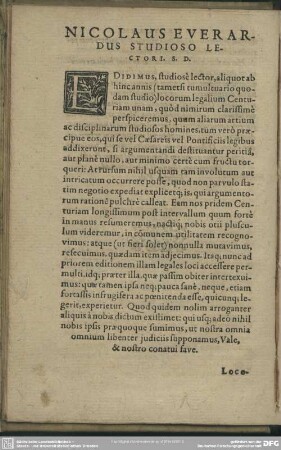 NICOLAUS EVERAR-
DUS STUDIOSO LE-
CTORI. S. D.
EDIDIMUS, studiose lector, aliquot ab
hinc annis (tametsi tumultuario quo-
dam studio) locorum legalium Centu-
riam unam, quòd nimirum clarissimè
perspiceremus, quàm aliarum artium
ac disciplinarum studiosos homines, tum verò præ-
cipue eos, qui se vel Cæsareis vel Pontificiis legibus
addixerunt, si argumentandi destituantur peritia,
aut planè nullo, aut minimo certè cum fructu tor-
queri: At rursum nihil usquam tam involutum aut
intricatum occurrere posse, quod non parvulo sta-
tim negotio expediat explicetq; is, qui argumento-
rum rationē pulchrè calleat. Eam nos pridem Cen-
turiam longissimum post intervallum quum fortè
in manus resumeremus, nactiq; nobis otii pluscu-
lum videremur, in communem utilitatem recogno-
vimus: atque (ut fieri solet) nonnulla mutavimus,
resecuimus, quædam item adjecimus. Itaq; nunc ad
priorem editionem illam legales loci accessere per-
multi, idq; præter illa, quæ passim obiter intertexui-
mus: quæ tamen ipsa neq; pauca sanè, neque, etiam
fortassis infrugifera ac pœnitenda esse, quicunq; le-
geris, experietur. Quod quidem nolim arroganter
aliquis à nobis dictum existimet: qui usq; adeò nihil
nobis ipsis præquoque sumimus, ut nostra omnia
omnium libenter judiciis supponamus, Vale,
& nostro conatui fave.
Loco-
DFG